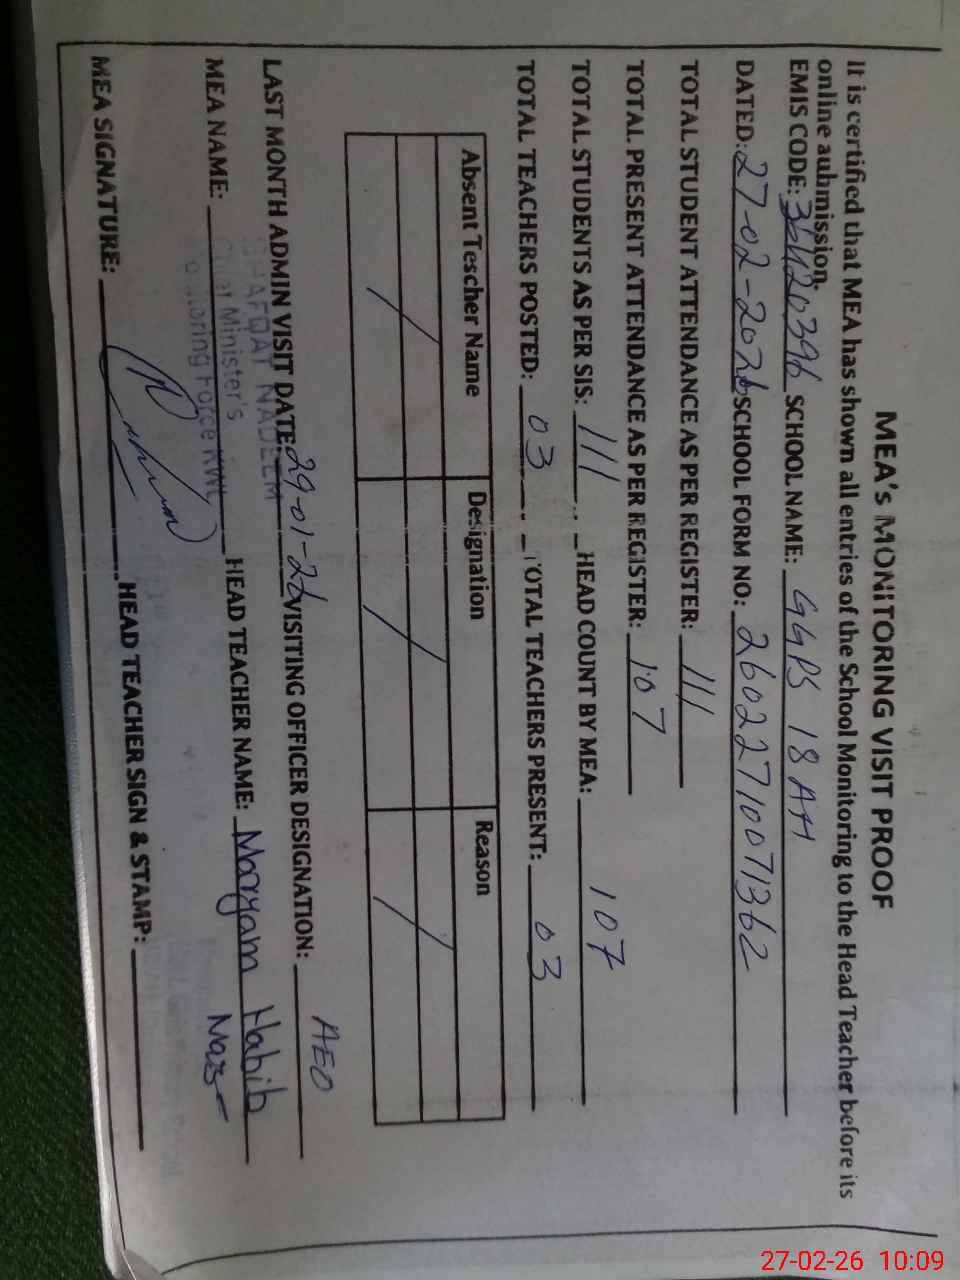 MEA's MONITORING VISIT PROOF
It is certified that MEA has shown all entries of the School Monitoring to the Head Teacher before its
online aubmission.
EMIS CODE: 36120396 SCHOOL NAME: GGPS 18 AH
DATED: 27-02-2026 SCHOOL FORM NO: 26022710071362
TOTAL STUDENT ATTENDANCE AS PER REGISTER: 111
TOTAL PRESENT ATTENDANCE AS PER REGISTER: 107
TOTAL STUDENTS AS PER SIS: 111 HEAD COUNT BY MEA: 107
TOTAL TEACHERS POSTED: 03 TOTAL TEACHERS PRESENT: 03
Absent Tescher Name Designation Reason
/ / /
LAST MONTH ADMIN VISIT DATE: 29-01-26 VISITING OFFICER DESIGNATION: AEO
MEA NAME: HEAD TEACHER NAME: Maryam Habib
SHAFQAT NADEEM
Chief Minister's
Monitoring Force KWL
MEA SIGNATURE: HEAD TEACHER SIGN & STAMP:
27-02-26 10:09